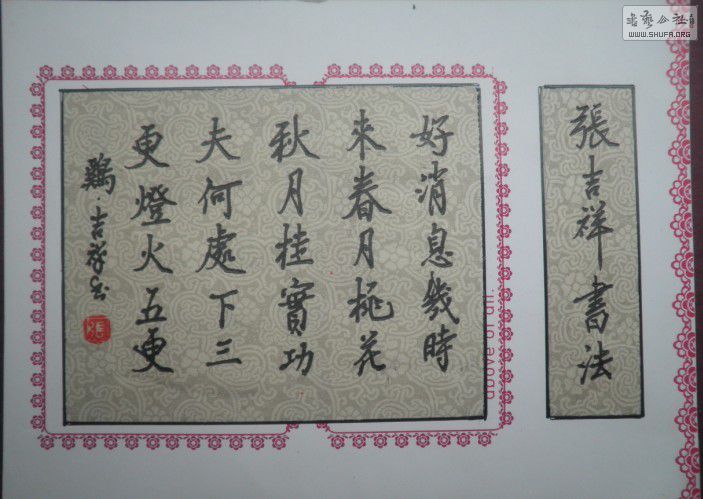 張吉祥書法
好消息幾時
來春月桃花
秋月桂實功
夫何處下三
更燈火五更
鷄·吉祥書
張
書藝公社
WWW.SHUFA.ORG